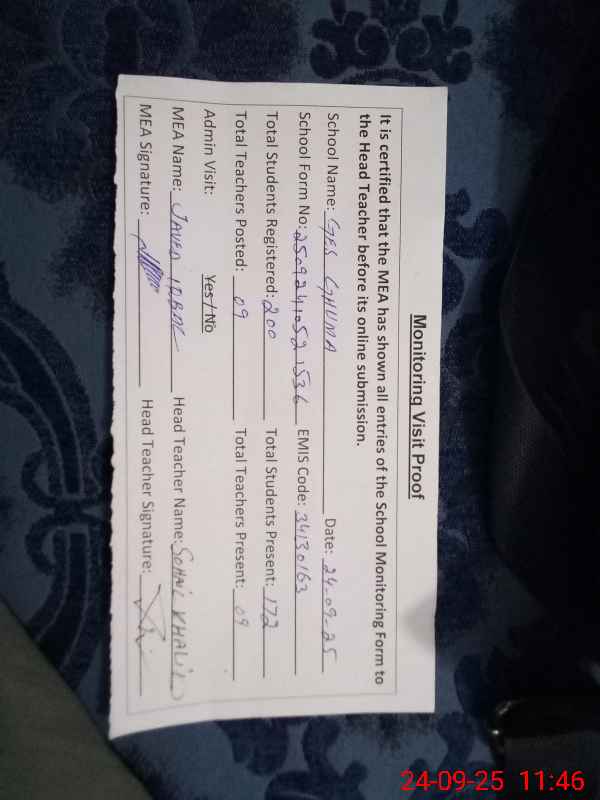 Monitoring Visit Proof
It is certified that the MEA has shown all entries of the School Monitoring Form to
the Head Teacher before its online submission.
School Name: GES GHUMA Date: 24-09-25
School Form No: 25092410521536 EMIS Code: 34130163
Total Students Registered: 200 Total Students Present: 172
Total Teachers Posted: 09 Total Teachers Present: 09
Admin Visit: Yes / No
MEA Name: JAVED IQBAL Head Teacher Name: SOHAIL KHALID
MEA Signature: Head Teacher Signature:
24-09-25 11:46